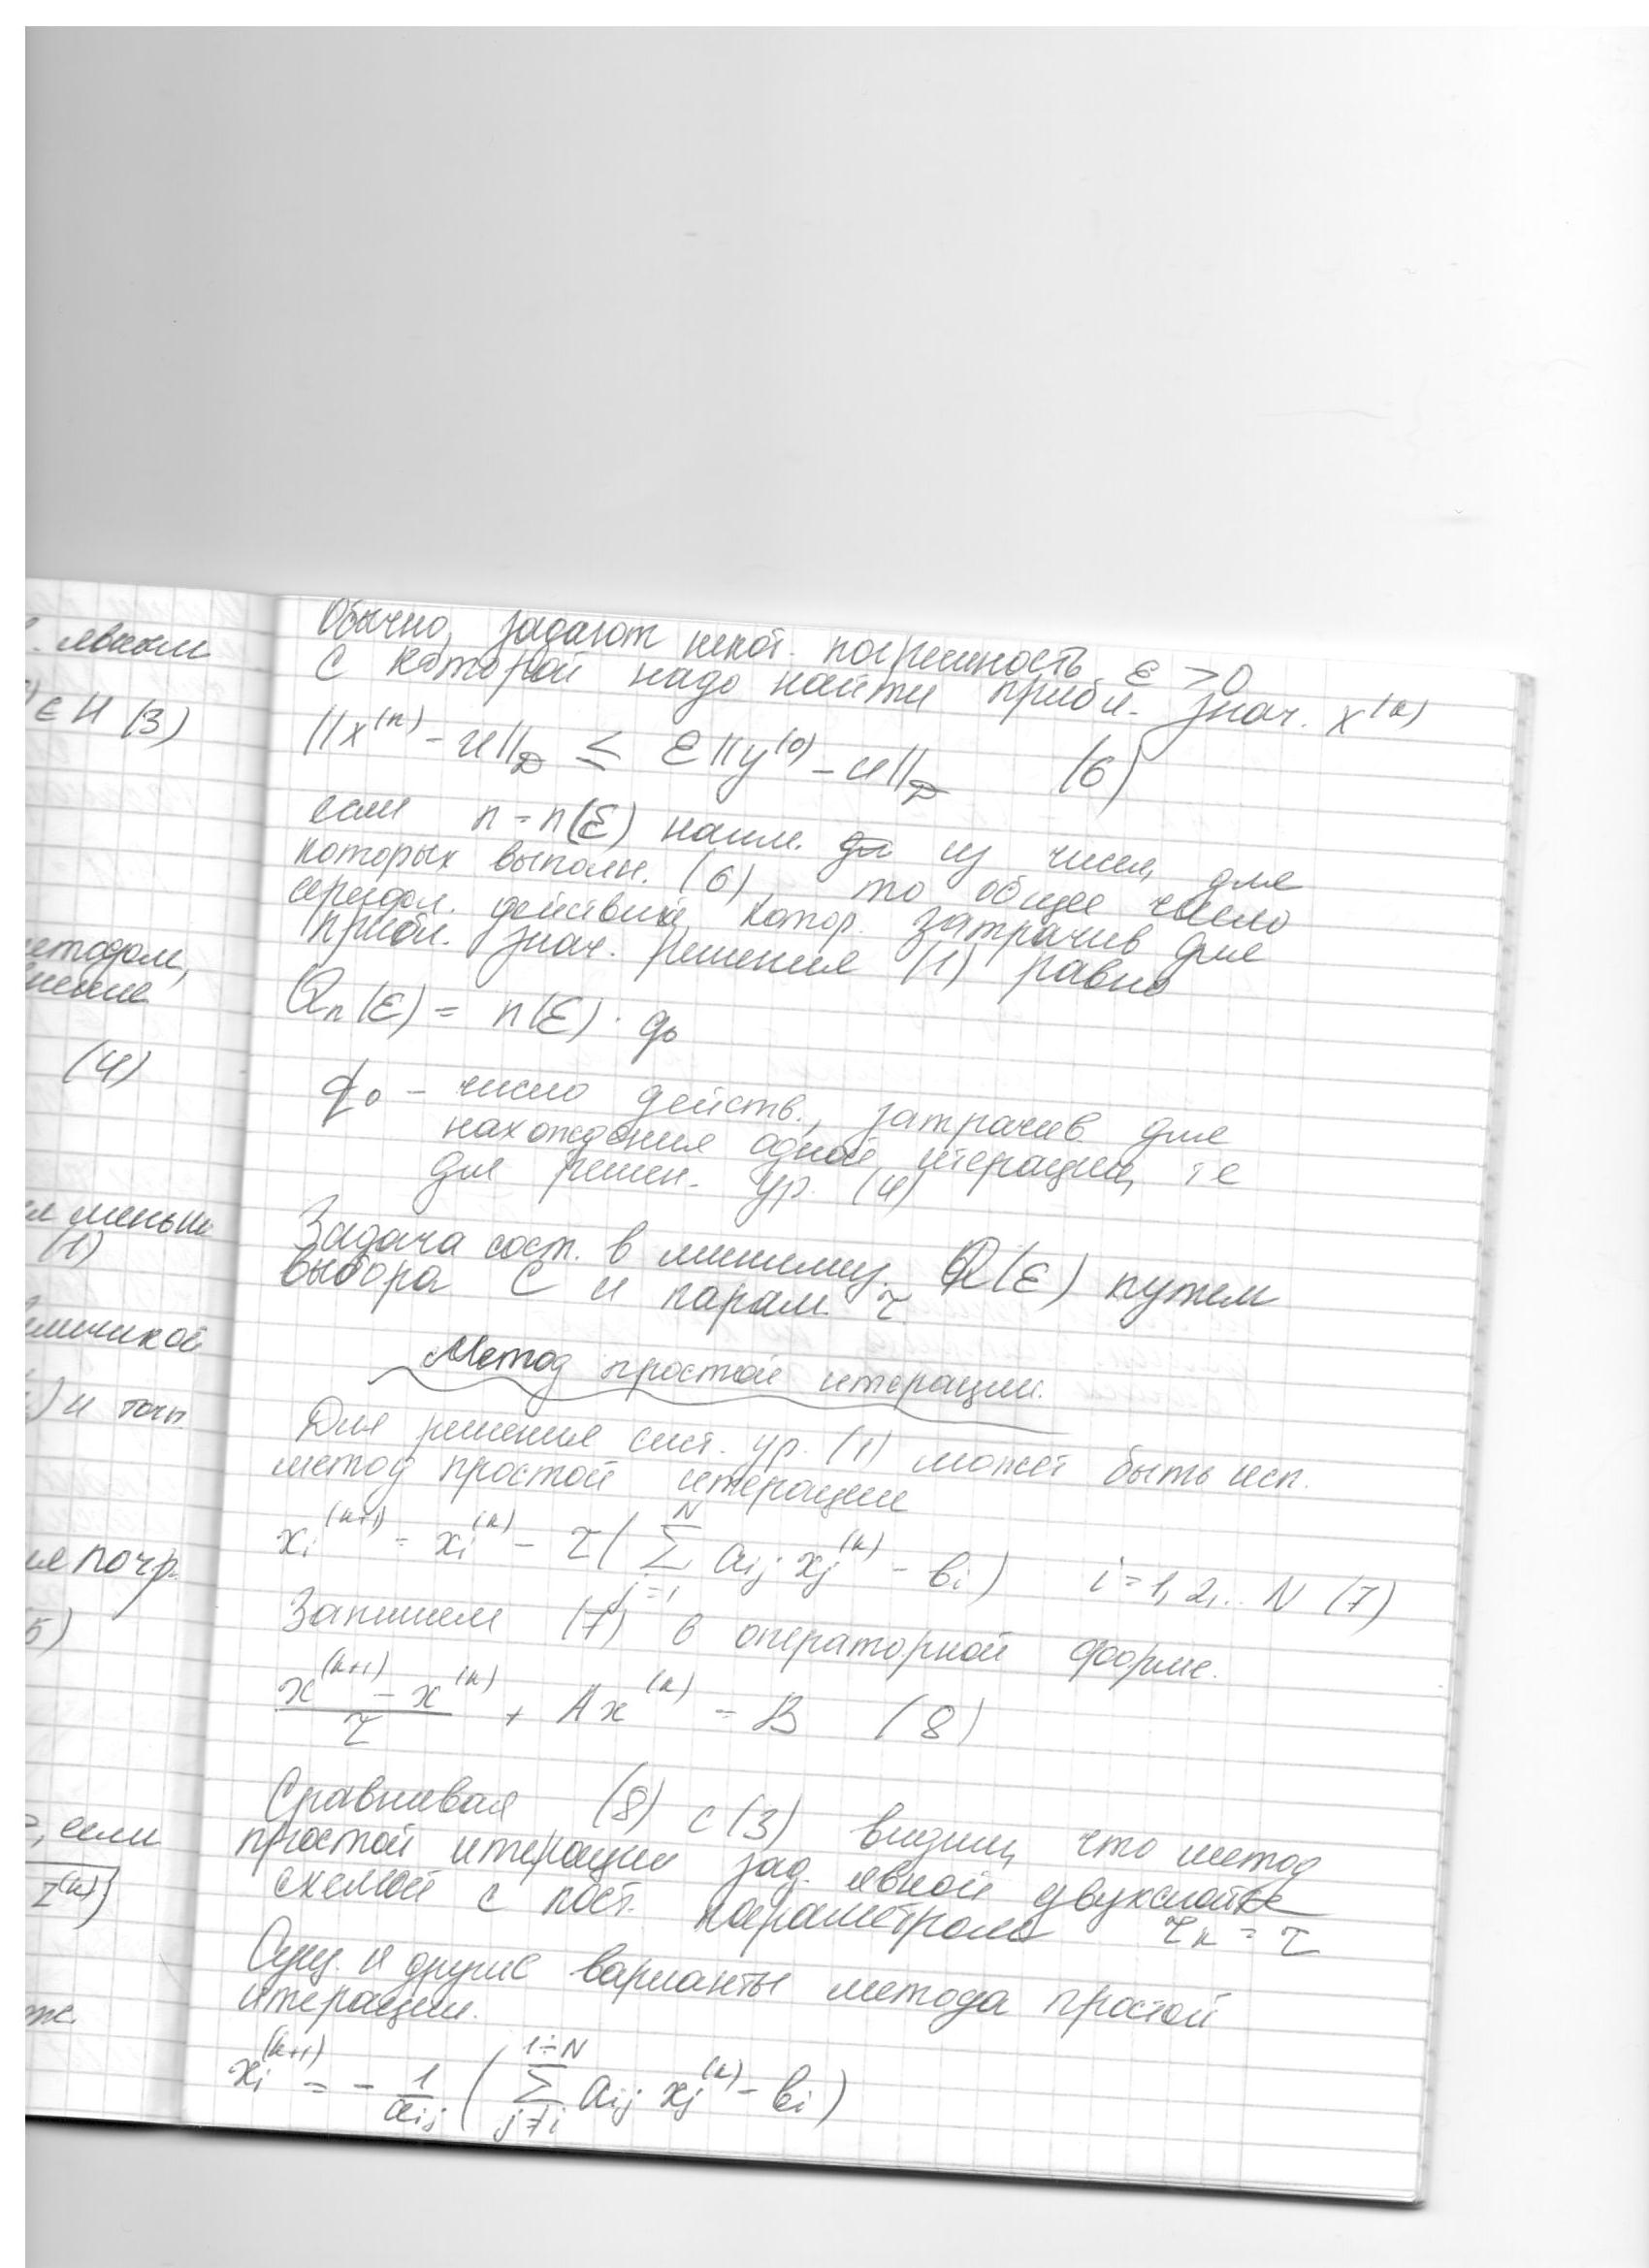 Обычно, задают некот. погрешность ε > 0
с которой надо найти прибл. знач. x^(n)
||x^(n) - u||_D ≤ ε||y^(0) - u||_D (6)
если n = n(ε) наим. из чисел, для
которых выполн. (6), то общее число
действий, котор. затрачив для
прибл. знач. решения (1) равно
Q_n(ε) = n(ε) · q_0
q_0 - число действ., затрачив для
нахождения одной итерации, те
для решен. ур. (4)
Задача сост. в минимиз. Q(ε) путем
выбора C и парам. τ
Метод простой итерации.
Для решения сист. ур. (1) может быть исп.
метод простой итерации
x_i^(k+1) = x_i^(k) - τ( ∑_{j=1}^{N} a_ij x_j^(k) - b_i) i = 1, 2, .. N (7)
Запишем (7) в операторной форме.
(x^(k+1) - x^(k))/τ + Ax^(k) = B (8)
Сравнивая (8) с (3) видим, что метод
простой итерации зад. явной двухслойн
схемой с пост. параметром τ_k = τ
Сущ. и другие варианты метода простой
итерации.
x_i^(k+1) = - 1/a_ij ( ∑_{j≠i}^{1÷N} a_ij x_j^(k) - b_i)
явным
∈ H (3)
етодом,
(4)
меньш
(1)
) и точн.
погр.
5)
, если
z^(k)}